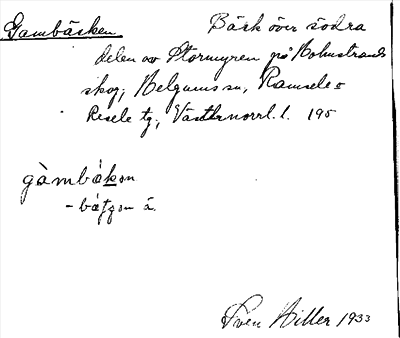 Gambäcken Bäck över södra
delen av Stormyren på Holmstrands
skog, Helgums sn, Ramsele o
Resele tg, Västernorrl. l. 195
gàmbákən
- bátʒən ä.
Sven Hiller 1933